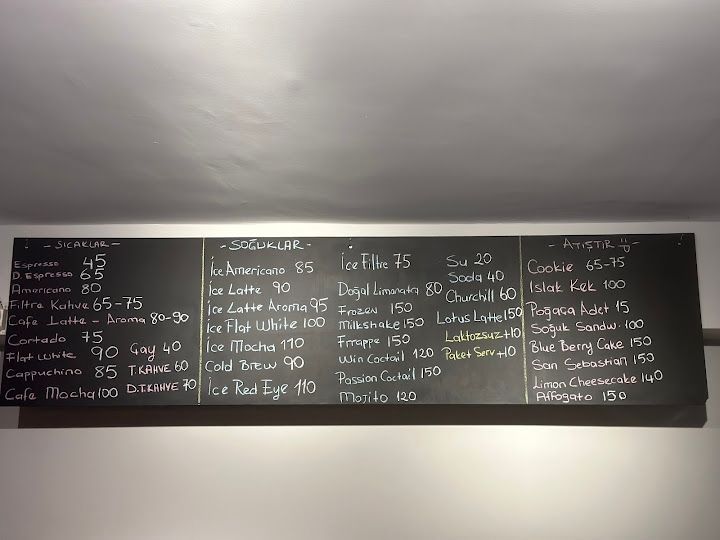 - SICAKLAR -
Espresso 45
D. Espresso 65
Americano 80
Filtre Kahve 65-75
Cafe Latte - Aroma 80-90
Cortado 75
Flat White 90
Cappuchino 85
Cafe Mocha 100
Çay 40
T.KAHVE 60
D.T.KAHVE 70
- SOĞUKLAR -
İce Americano 85
İce Latte 90
İce Latte Aroma 95
İce Flat White 100
İce Mocha 110
Cold Brew 90
İce Red Eye 110
İce Filtre 75
Doğal Limonata 80
Frozen 150
Milkshake 150
Frrappe 150
Win Coctail 120
Passion Coctail 150
Mojito 120
Su 20
Soda 40
Churchill 60
Lotus Latte 150
Laktozsuz +10
Paket Serv +10
- ATIŞTIR -
Cookie 65-75
Islak Kek 100
Poğaca Adet 15
Soğuk Sandw. 100
Blue Berry Cake 150
San Sebastian 150
Limon Cheesecake 140
Affogato 150